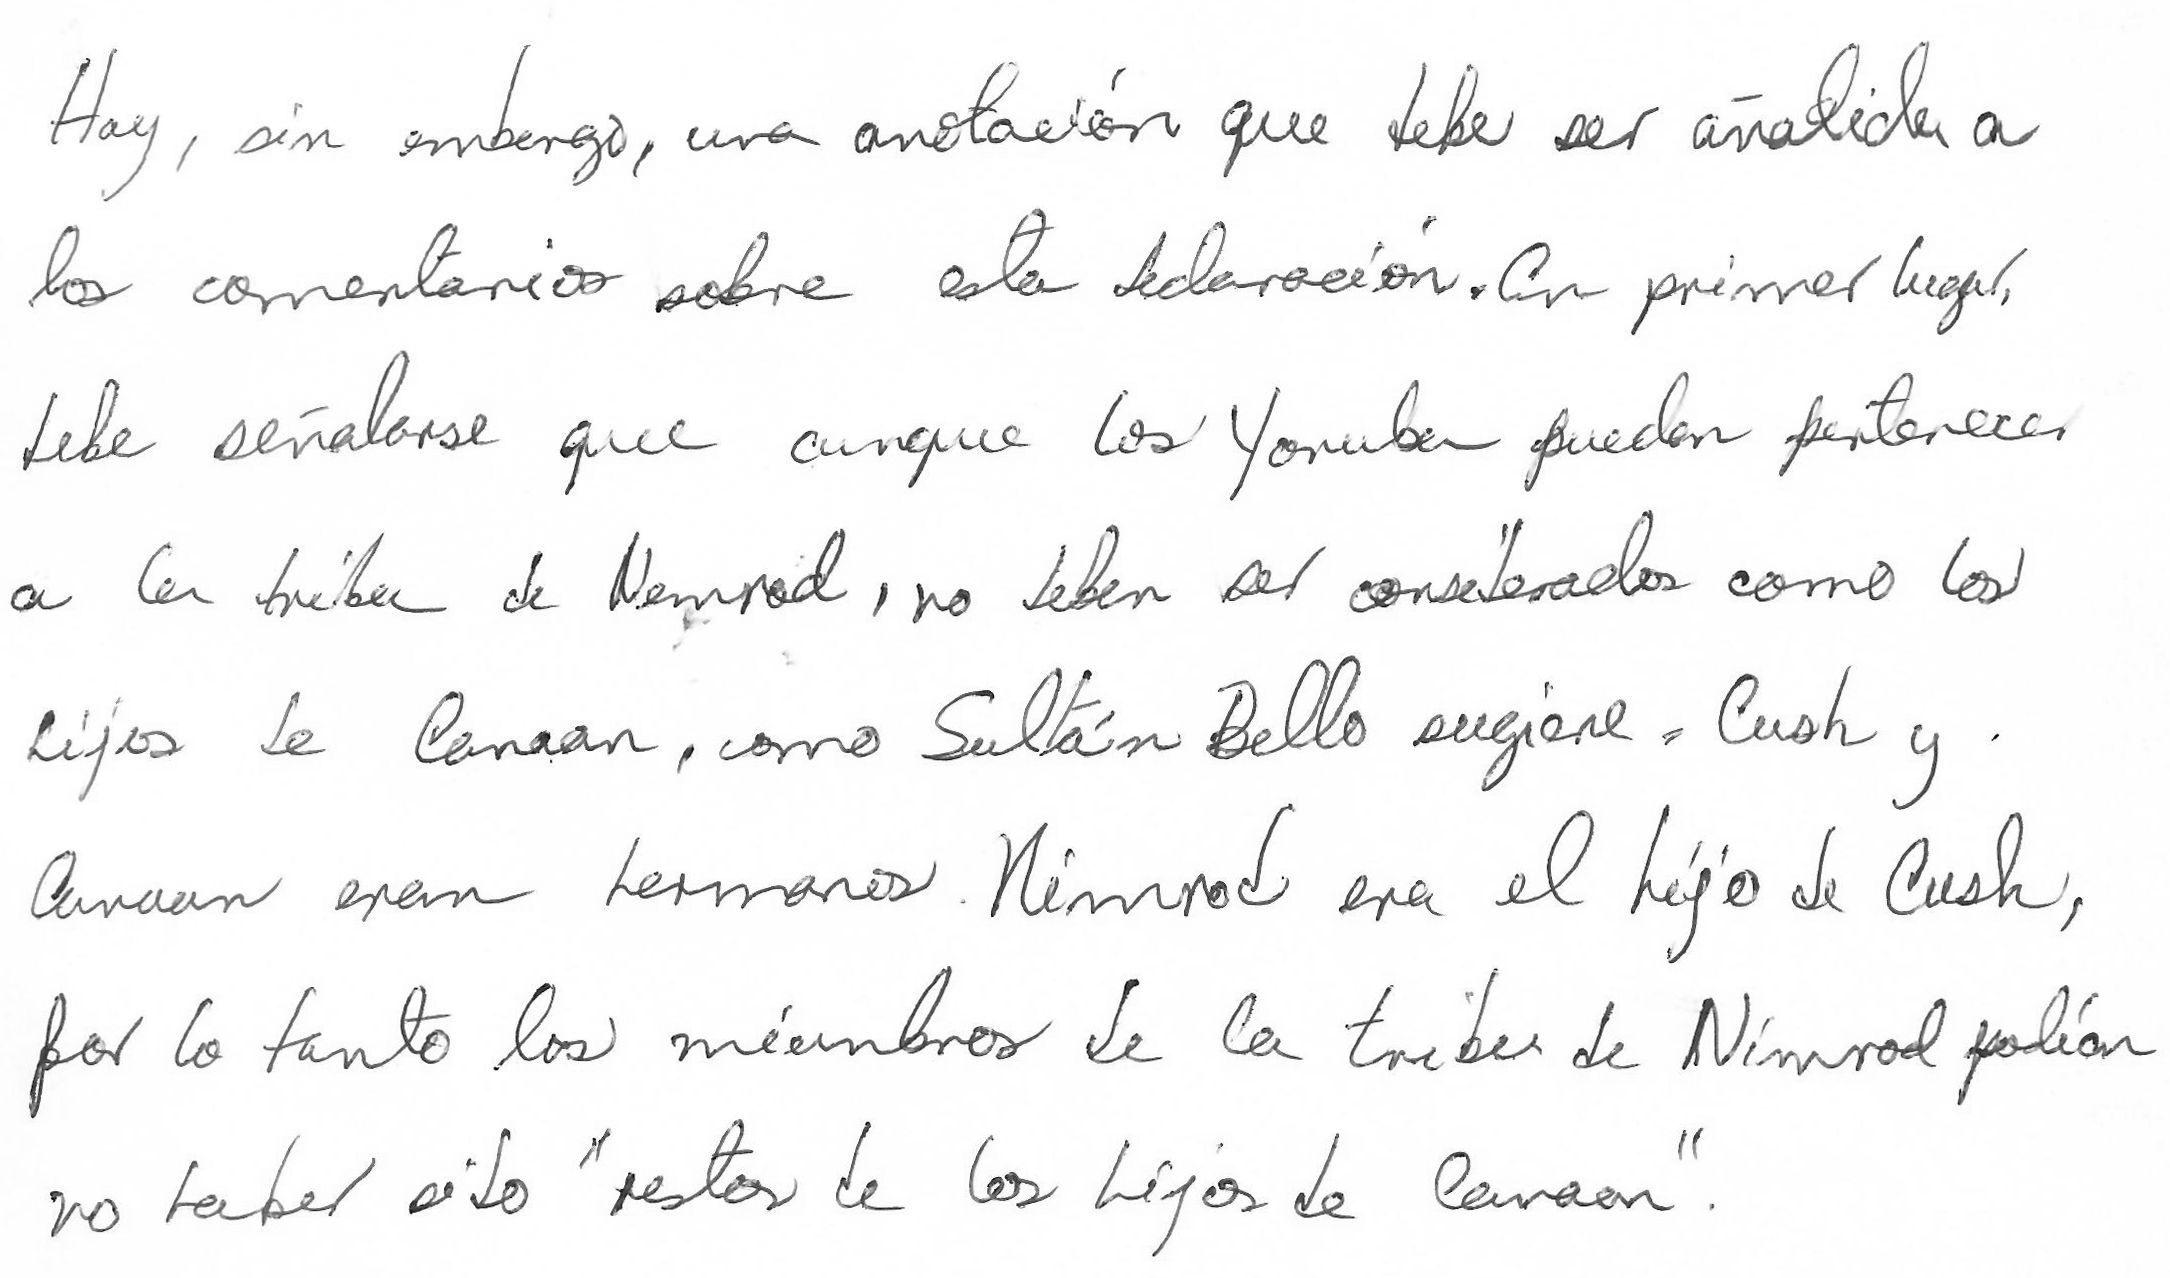 Hay, sin embargo, una anotación que debe ser añadida a
los comentarios sobre esta declaración. En primer lugar,
debe señalarse que aunque los Yoruba puedan pertenecer
a la tribu de Nemrod, no deben ser considerados como los
hijos de Canaan, como Sultán Bello sugiere. Cush y
Canaan eran hermanos. Nimrod era el hijo de Cush,
por lo tanto los miembros de la tribu de Nimrod podían
no haber sido "restos de los hijos de Canaan".